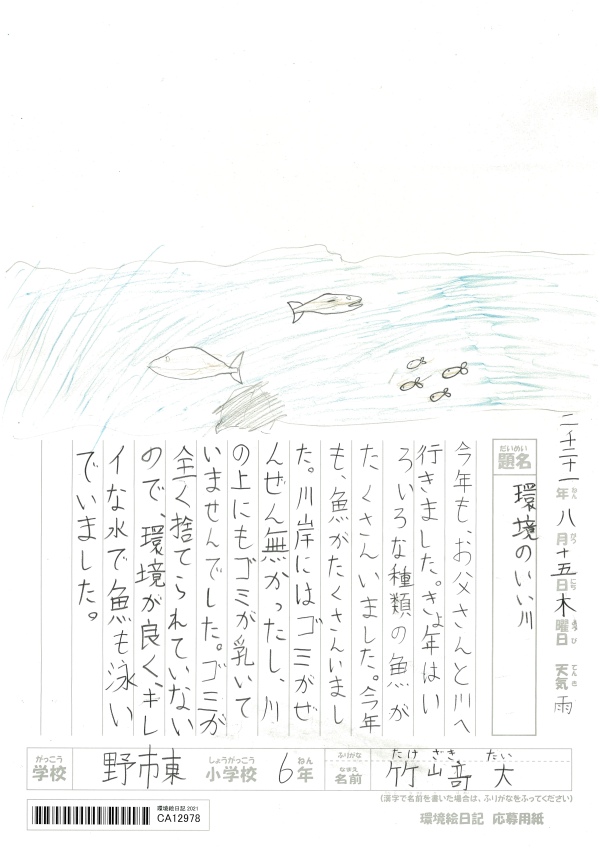 二千二十一年八月十五日木曜日 天気雨
ねん がつ にち よう び てん き
だいめい
題名
環境のいい川
今年も、お父さんと川へ
行きました。きょ年はい
ろいろな種類の魚が
たくさんいました。今年
も、魚がたくさんいまし
た。川岸にはゴミがぜ
んぜん無かったし、川
の上にもゴミが乳いて
いませんでした。ゴミが
全く捨てられていない
ので、環境が良く、キレ
イな水で魚も泳い
でいました。
がっこう しょうがっこう ねん ふりがな たけ ざき たい
学校 野市東 小学校 6年 なまえ 名前 竹﨑 大
(漢字で名前を書いた場合は、ふりがなをふってください)
環境絵日記 応募用紙
環境絵日記 2021
CA12978